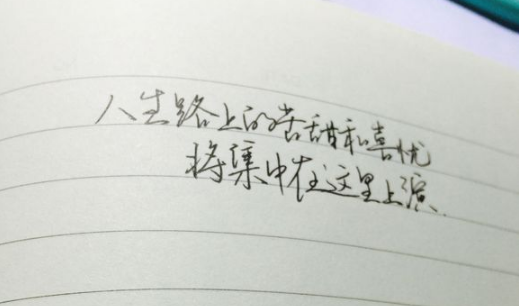 人生路上的苦甜和喜忧
将集中在这里上演